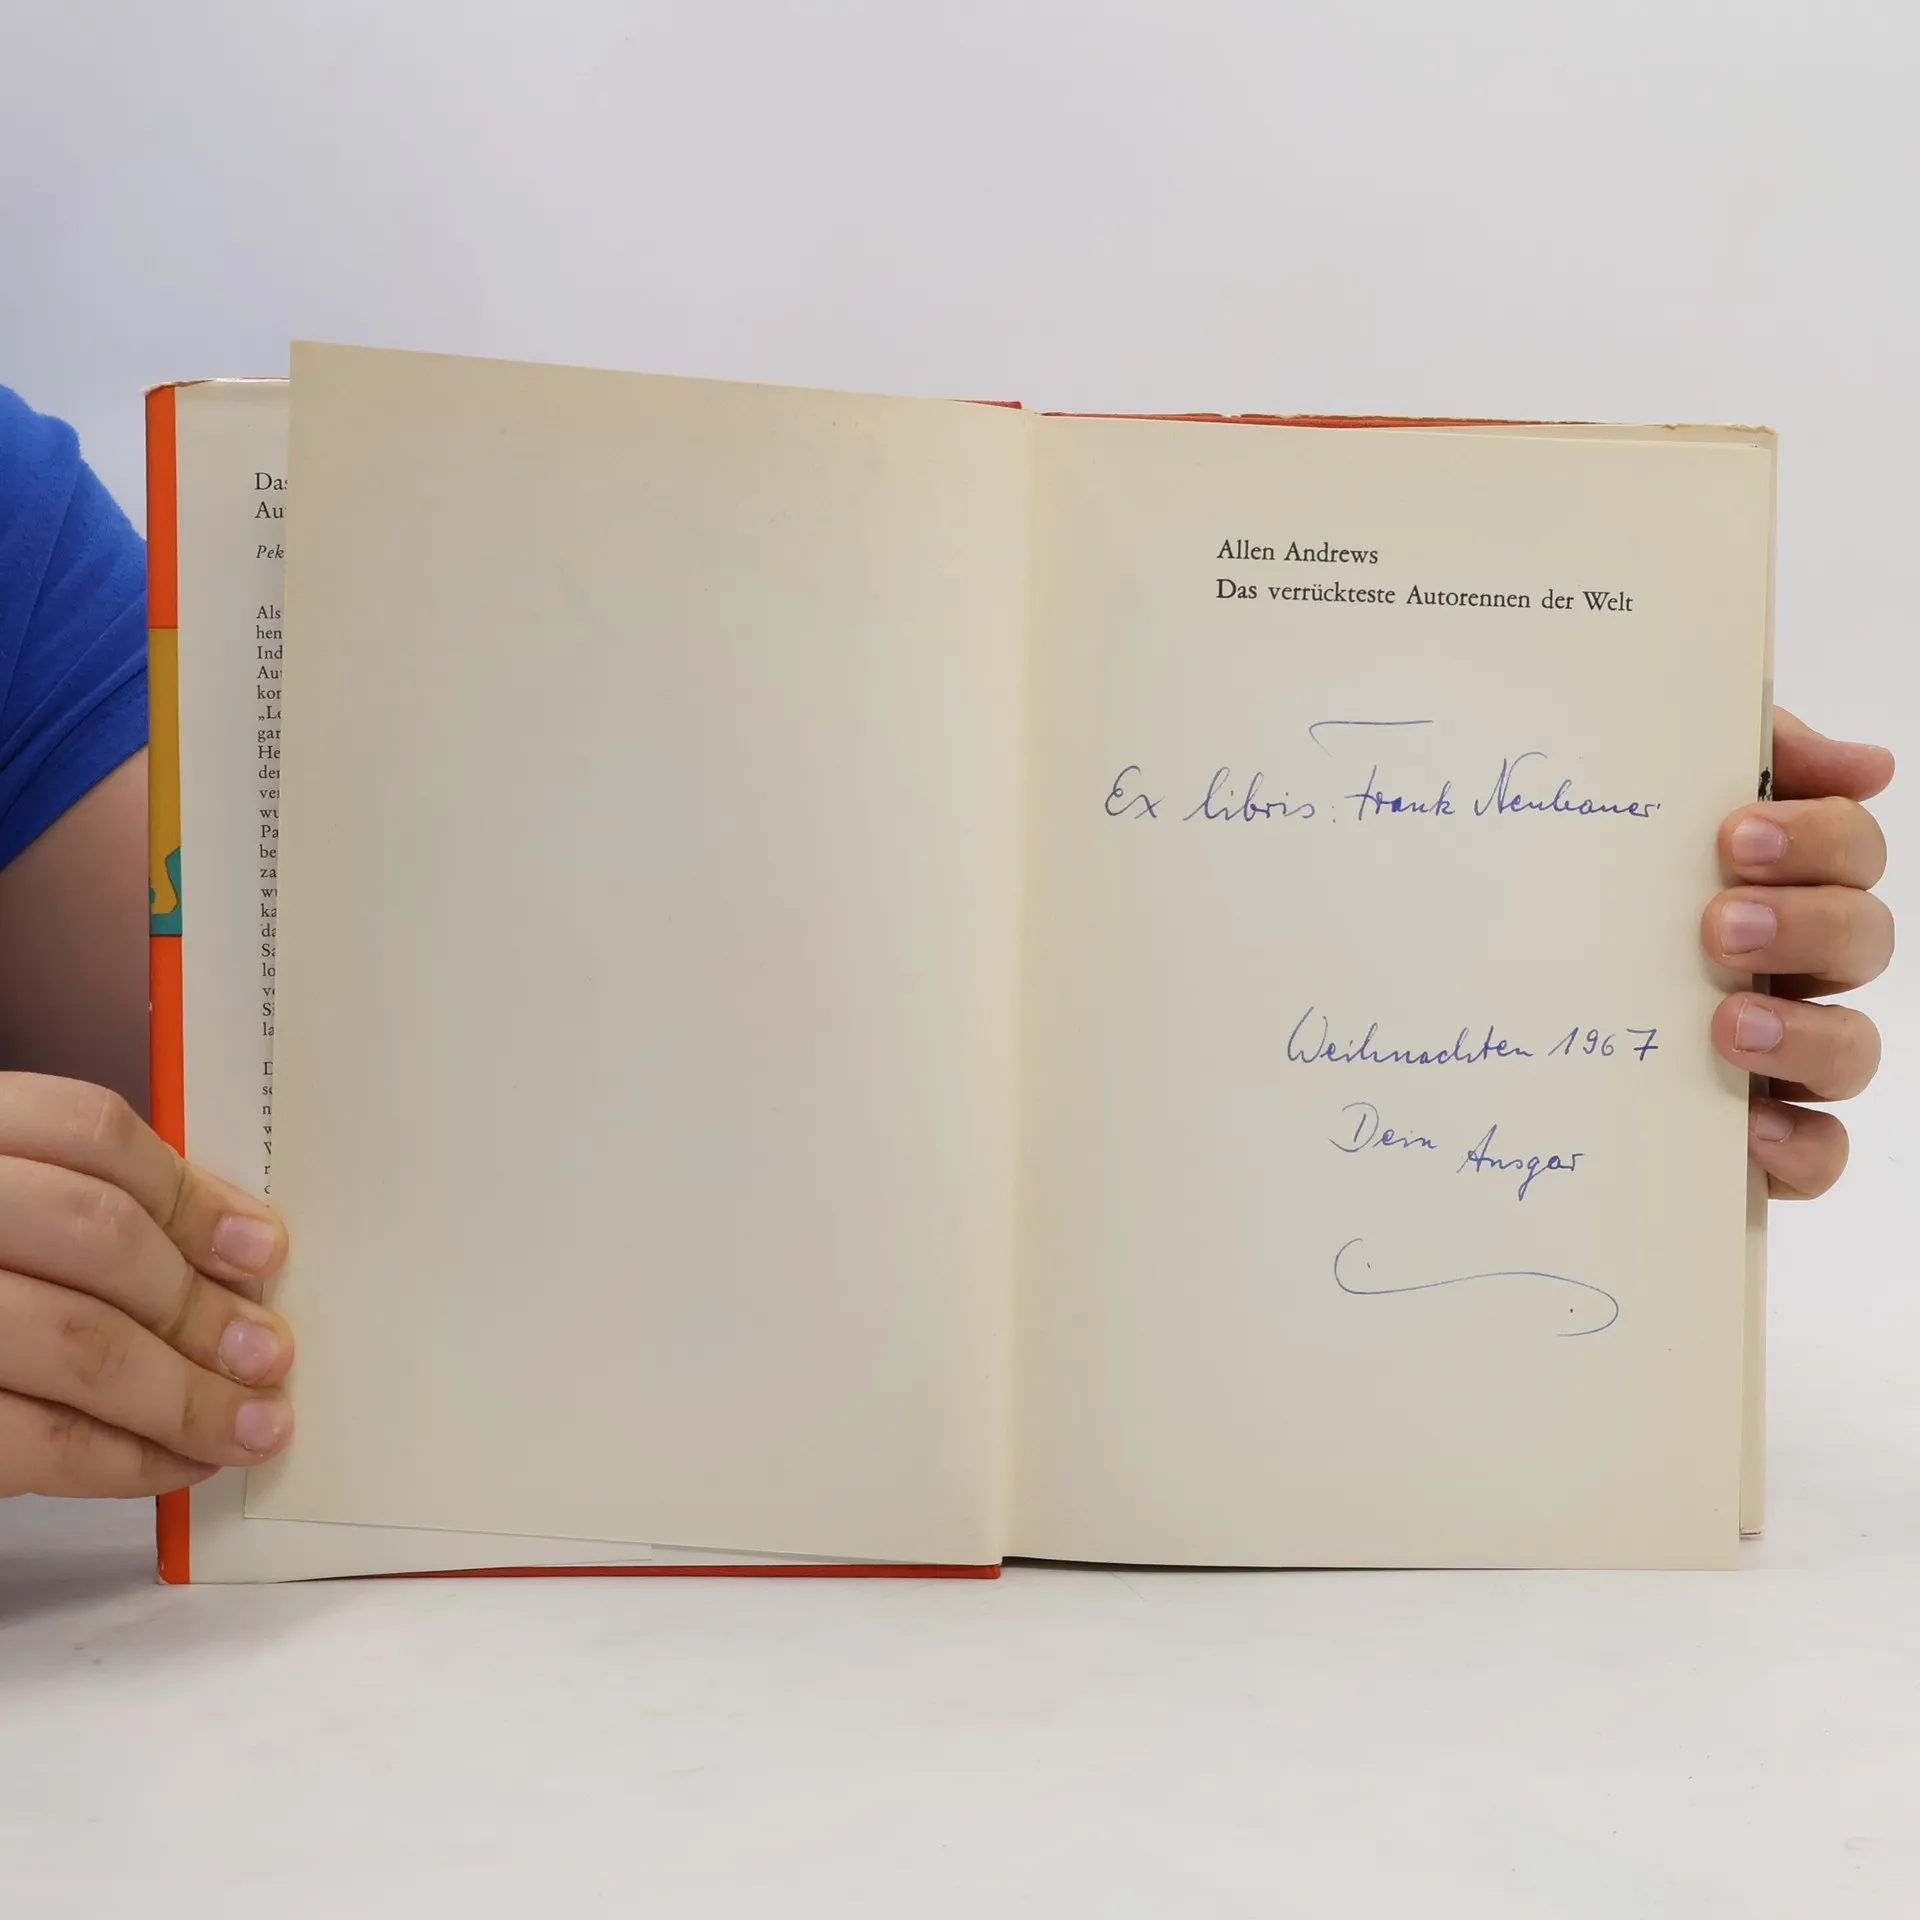 Das
Au
Pek
Als
hen
Ind
Au
kor
„Le
gar
He
der
ver
wu
Pa
be
za
wu
ka
da
Sa
lo
ve
Si
la
D
so
n
w
V
r
d
Allen Andrews
Das verrückteste Autorennen der Welt
Ex libris: Frank Neubauer
Weihnachten 1967
Dein Ansgar